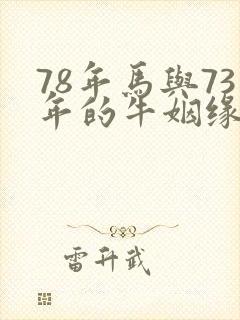 78年馬與73
年的牛姻缘
雷升武